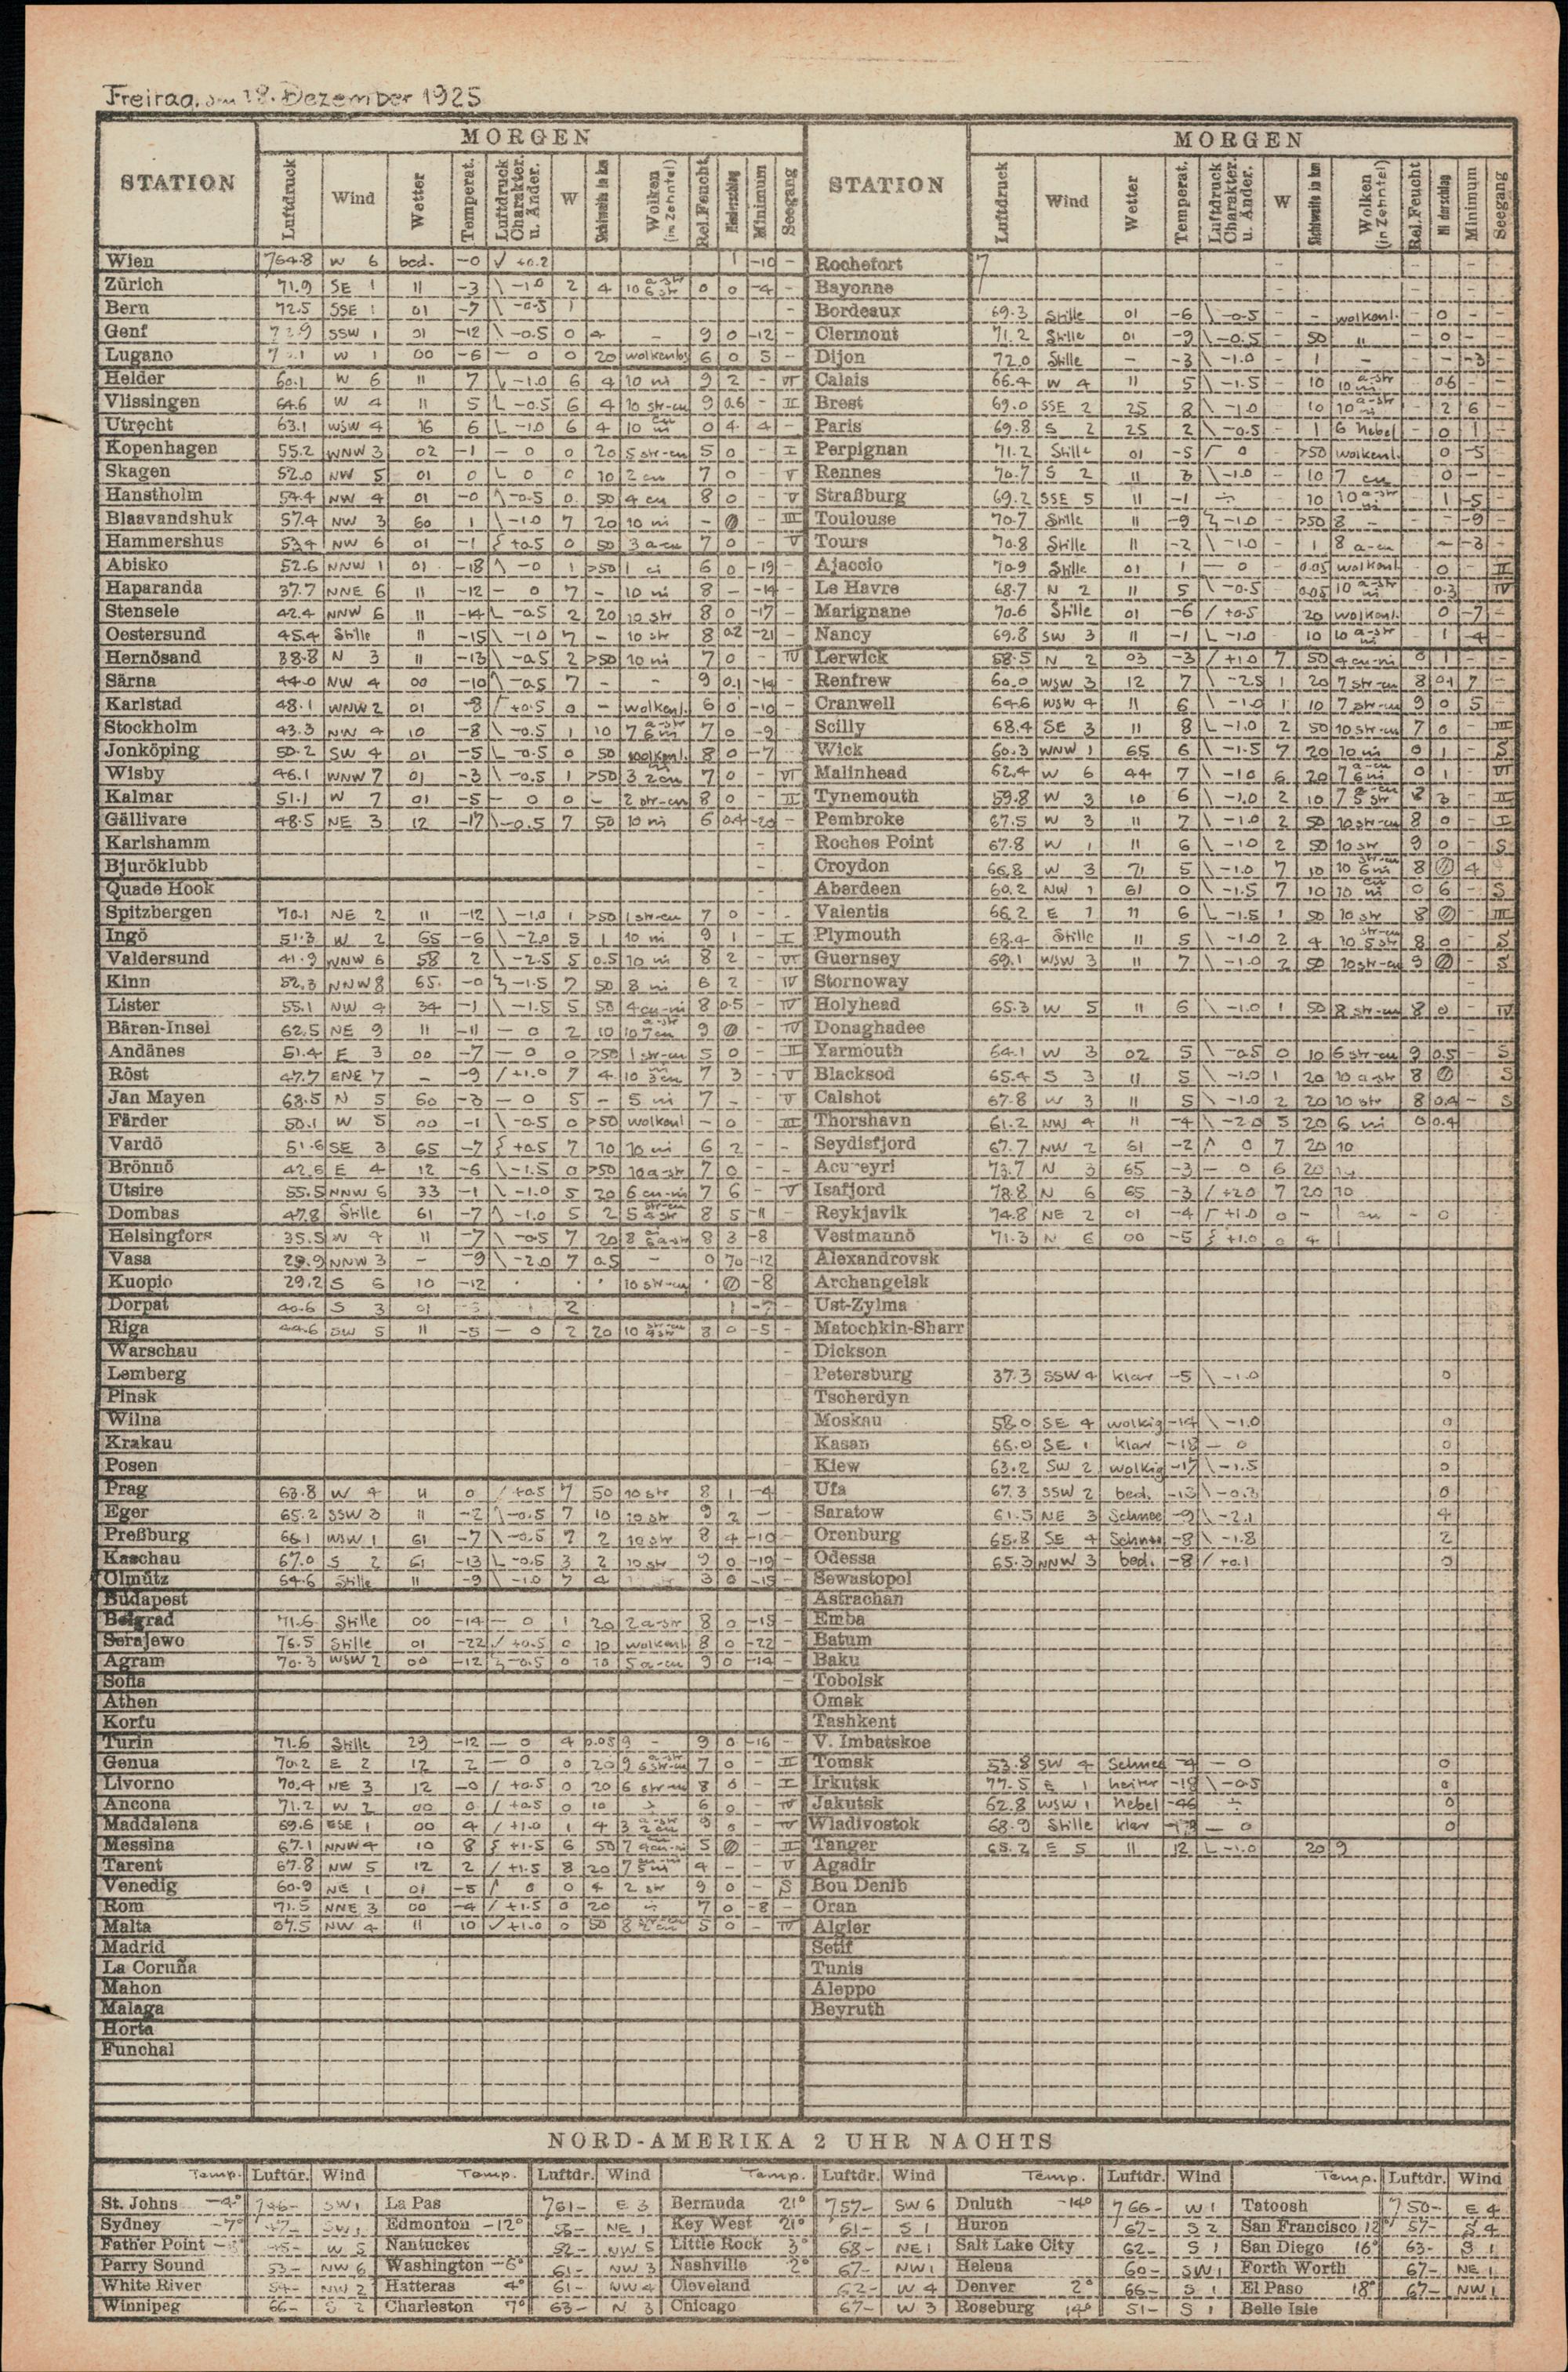 Freitag, am 18. Dezember 1925
STATION MORGEN STATION MORGEN
Luftdruck Wind Wetter Temperat. Luftdruck Charakter. u. Änder. W Sichtweite in km Wolken (in Zehntel) Rel. Feucht Niederschlag Minimum Seegang Luftdruck Wind Wetter Temperat. Luftdruck Charakter. u. Änder. W Sichtweite in km Wolken (in Zehntel) Rel. Feucht Minimum Seegang
Wien 764.8 W 6 bed. -0 +0.2 1 -10 - Rochefort 7
Zürich 71.9 SE 1 11 -3 \ -1.0 2 4 10 a-str 6 str 0 0 -4 - Bayonne
Bern 72.5 SSE 1 01 -7 \ -0.5 1 - Bordeaux 69.3 Stille 01 -6 \ -0.5 - - wolkenl. - 0 -
Genf SSW 1 01 -12 \ -0.5 0 4 - 9 0 -12 - Clermont 71.2 Stille 01 -9 \ -0.5 - 50 " 0 -
Lugano W 1 00 -6 - 0 0 20 wolkenlos 6 0 5 - Dijon 72.0 Stille - -3 \ -1.0 - 1 - - -3 -
Helder 60.1 W 6 11 7 -1.0 6 4 10 ni 9 2 - VI Calais 66.4 W 4 11 5 \ -1.5 - 10 10 a-str ni 0.6 -
Vlissingen 64.6 W 4 11 5 L -0.5 6 4 10 str-cu 9 0.6 - II Brest 69.0 SSE 2 25 8 \ -1.0 - 10 10 a-str 2 6 -
Utrecht 63.1 WSW 4 16 6 L -1.0 6 4 10 cu ni 0 4 4 - Paris 69.8 S 2 25 2 \ -0.5 - 1 6 Nebel - 0 1 -
Kopenhagen 55.2 WNW 3 02 -1 - 0 0 20 5 str-cu 5 0 - I Perpignan 71.2 Stille 01 -5 / 0 >50 wolkenl. 0 -5 -
Skagen 52.0 NW 5 01 0 L 0 0 10 2 cu 7 0 - V Rennes 70.7 S 2 11 3 \ -1.0 - 10 7 cu 0 -
Hanstholm 54.4 NW 4 01 -0 -0.5 0 50 4 cu 8 0 - V Straßburg 69.2 SSE 5 11 -1 ÷ 10 10 a-str ni 1 -5 -
Blaavandshuk 57.4 NW 3 60 1 \ -1.0 7 20 10 ni - - III Toulouse 70.7 Stille 11 -9 -1.0 - >50 8 - - -9 -
Hammershus 53.4 NW 6 01 -1 +0.5 0 50 3 a-cu 7 0 - V Tours 70.8 Stille 11 -2 \ -1.0 - 1 8 a-cu - -3 -
Abisko 52.6 NNW 1 01 -18 -0 1 >50 1 ci 6 0 -19 - Ajaccio 70.9 Stille 01 1 - 0 0.05 wolkenl. 0 - II
Haparanda 37.7 NNE 6 11 -12 - 0 7 - 10 ni 8 - -14 - Le Havre 68.7 N 2 11 5 \ -0.5 0.05 10 a-str ni 0.3 IV
Stensele 42.4 NNW 6 11 -14 L -0.5 2 20 10 str 8 0 -17 - Marignane 70.6 Stille 01 -6 / +0.5 20 wolkenl. 0 -7 -
Oestersund 45.4 Stille 11 -15 \ -1.0 7 - 10 str 8 0.2 -21 - Nancy 69.8 SW 3 11 -1 L -1.0 10 10 a-str ni 1 -4 -
Hernösand 38.8 N 3 11 -13 \ -0.5 2 >50 10 ni 7 0 - IV Lerwick 58.5 N 2 03 -3 / +1.0 7 50 4 cu-ni 0 1 - -
Särna 44.0 NW 4 00 -10 -0.5 7 - - 9 0.1 -14 - Renfrew 60.0 WSW 3 12 7 \ -2.5 1 20 7 str-cu 8 0.1 7 -
Karlstad 48.1 WNW 2 01 -8 +0.5 0 - wolkenl. 6 0 -10 - Cranwell 64.6 WSW 4 11 6 \ -1.0 1 10 7 str-cu 9 0 5 -
Stockholm 43.3 NW 4 10 -8 \ -0.5 1 10 7 a-str 6 ni 7 0 -9 - Scilly 68.4 SE 3 11 8 L -1.0 2 50 10 str-cu 7 0 - III
Jonköping 50.2 SW 4 01 -5 L -0.5 0 50 wolkenl. 8 0 -7 - Wick 60.3 WNW 1 65 6 \ -1.5 7 20 10 ni 0 1 - S
Wisby 46.1 WNW 7 01 -3 \ -0.5 1 >50 3 2 cu 7 0 - VI Malinhead 62.4 W 6 44 7 \ -1.0 6 20 7 a-cu 6 ni 0 1 - VI
Kalmar 51.1 W 7 01 -5 - 0 0 - 2 str-cu 8 0 - II Tynemouth 59.8 W 3 10 6 \ -1.0 2 10 7 a-cu 5 str 8 3 - II
Gällivare 48.5 NE 3 12 -17 \ -0.5 7 50 10 ni 6 0.4 -20 - Pembroke 67.5 W 3 11 7 \ -1.0 2 50 10 str-cu 8 0 - I
Karlshamm - Roches Point 67.8 W 1 11 6 \ -1.0 2 50 10 str 9 0 - S
Bjuröklubb - Croydon 66.8 W 3 71 5 \ -1.0 7 10 10 str-cu 6 ni 8 4 -
Quade Hook - Aberdeen 60.2 NW 1 61 0 \ -1.5 7 10 10 cu ni 0 6 - S
Spitzbergen 70.1 NE 2 11 -12 \ -1.0 1 >50 1 str-cu 7 0 - - Valentia 66.2 E 1 11 6 L -1.5 1 50 10 str 8 - III
Ingö 51.3 W 2 65 -6 \ -2.0 5 1 10 ni 9 1 - I Plymouth 68.4 Stille 11 5 \ -1.0 2 4 10 str-cu 5 str 8 0 - S
Valdersund 41.9 WNW 6 58 2 \ -2.5 5 0.5 10 ni 8 2 - VI Guernsey 69.1 WSW 3 11 7 \ -1.0 2 50 10 str-cu 9 - S
Kinn 52.3 NNW 8 65 -0 -1.5 7 50 8 ni 6 2 - IV Stornoway
Lister 55.1 NW 4 34 -1 \ -1.5 5 50 4 cu-ni 8 0.5 - IV Holyhead 65.3 W 5 11 6 \ -1.0 1 50 8 str-cu 8 0 - IV
Bären-Insel 62.5 NE 9 11 -11 - 0 2 10 10 a-str 7 cu 9 - IV Donaghadee
Andänes 51.4 E 3 00 -7 - 0 0 >50 1 str-cu 5 0 - II Yarmouth 64.1 W 3 02 5 \ -0.5 0 10 6 str-cu 9 0.5 - S
Röst 47.7 ENE 7 - -9 / +1.0 7 4 10 3 cu 7 3 - V Blacksod 65.4 S 3 11 5 \ -1.0 1 20 10 a-str 8 - S
Jan Mayen 63.5 N 5 60 -3 - 0 5 - 5 ni 7 - - V Calshot 67.8 W 3 11 5 \ -1.0 2 20 10 str 8 0.4 - S
Färder 50.1 W 5 00 -1 \ -0.5 0 >50 wolkenl - 0 - III Thorshavn 61.2 NW 4 11 -4 \ -2.0 5 20 6 ni 0 0.4
Vardö 51.6 SE 3 65 -7 +0.5 7 10 10 ni 6 2 - Seydisfjord 67.7 NW 2 61 -2 0 7 20 10
Brönnö 42.6 E 4 12 -6 \ -1.5 0 >50 10 a-str 7 0 - Acureyri 73.7 N 3 65 -3 - 0 6 20
Utsire 55.5 NNW 6 33 -1 \ -1.0 5 20 6 cu-ni 7 6 - V Isafjord 78.8 N 6 65 -3 / +2.0 7 20 10
Dombas 47.8 Stille 61 -7 -1.0 5 2 5 str-cu 4 str 8 5 -11 - Reykjavik 74.8 NE 2 01 -4 +1.0 0 - 1 cu - 0
Helsingfors 35.5 W 4 11 -7 \ -0.5 7 20 8 6 a-str 8 3 -8 Vestmannö 71.3 N 6 00 -5 +1.0 0 4 1
Vasa 29.9 NNW 3 - -9 \ -2.0 7 0.5 - 0 70 -12 Alexandrovsk
Kuopio 29.2 S 6 10 -12 10 str-cu -8 Archangelsk
Dorpat 40.6 S 3 01 2 1 -7 - Ust-Zylma
Riga 44.6 SW 5 11 -5 - 0 2 20 10 str-cu 9 str 8 0 -5 - Matochkin-Sharr
Warschau - Dickson
Lemberg - Petersburg 37.3 SSW 4 klar -5 \ -1.0 0
Pinsk - Tscherdyn
Wilna - Moskau 58.0 SE 4 wolkig -14 \ -1.0 0
Krakau - Kasan 66.0 SE 1 klar -18 - 0 0
Posen - Kiew 63.2 SW 2 wolkig -17 \ -1.5 0
Prag 63.8 W 4 11 0 / +0.5 7 50 10 str 8 1 -4 - Ufa 67.3 SSW 2 bed. -13 \ -0.3 0
Eger 65.2 SSW 3 11 -2 \ -0.5 7 10 10 str 9 2 - Saratow 61.5 NE 3 Schnee -9 \ -2.1 4
Preßburg 66.1 WSW 1 61 -7 \ -0.5 7 2 10 str 8 4 -10 - Orenburg 65.8 SE 4 Schnee -8 \ -1.8 2
Kaschau 67.0 S 2 61 -13 L -0.5 3 2 10 str 9 0 -19 - Odessa 65.3 NNW 3 bed. -8 / +0.1 0
Olmütz 64.6 Stille 11 -9 \ -1.0 7 4 0 -15 - Sewastopol
Budapest - Astrachan
Belgrad 71.6 Stille 00 -14 - 0 1 20 2 a-str 8 0 -15 - Emba
Serajewo 76.5 Stille 01 -22 / +0.5 0 10 wolkenl. 8 0 -22 - Batum
Agram 70.3 WSW 2 00 -12 -0.5 0 10 5 a-cu 9 0 -14 - Baku
Sofia - Tobolsk
Athen Omsk
Korfu Tashkent
Turin 71.6 Stille 29 -12 - 0 4 0.05 9 - 9 0 -16 - V. Imbatskoe
Genua 70.2 E 2 12 2 - 0 0 20 9 a-str 6 str-cu 7 0 - II Tomsk 53.8 SW 4 Schnee -4 - 0 0
Livorno 70.4 NE 3 12 -0 / +0.5 0 20 6 str-cu 8 0 - I Irkutsk 77.5 E 1 heiter -18 \ -0.5 0
Ancona 71.2 W 2 00 0 / +0.5 0 10 6 0 - IV Jakutsk 62.8 WSW 1 Nebel -46 ÷ 0
Maddalena 69.6 ESE 1 00 4 / +1.0 1 4 3 a-str 2 cu 9 0 - IV Wladivostok 68.9 Stille klar - 0 0
Messina 67.1 NNW 4 10 8 +1.5 6 50 7 4 cu-ni 5 - II Tanger 65.2 E 5 11 12 L -1.0 20 9
Tarent 67.8 NW 5 12 2 / +1.5 8 20 7 5 ni 4 - - V Agadir
Venedig 60.9 NE 1 01 -5 0 0 4 2 str 9 0 - S Bou Denib
Rom 71.5 NNE 3 00 -4 / +1.5 0 20 - 7 0 -8 - Oran
Malta 67.5 NW 4 11 10 +1.0 0 50 8 5 0 - IV Algier
Madrid Setif
La Coruña Tunis
Mahon Aleppo
Malaga Beyruth
Horta
Funchal
NORD-AMERIKA 2 UHR NACHTS
Temp. Luftdr. Wind Temp. Luftdr. Wind Temp. Luftdr. Wind Temp. Luftdr. Wind Temp. Luftdr. Wind
St. Johns -4° 746- SW 1 La Pas 761- E 3 Bermuda 21° 757- SW 6 Duluth -14° 766- W 1 Tatoosh 750- E 4
Sydney -7° 47- SW 1 Edmonton -12° 56- NE 1 Key West 21° 61- S 1 Huron 67- S 2 San Francisco 12° 57- S 4
Father Point W 5 Nantucket 52- NW 5 Little Rock 3° 68- NE 1 Salt Lake City 62- S 1 San Diego 16° 63- S 1
Parry Sound 53- NW 6 Washington -6° 61- NW 3 Nashville 2° 67- NW 1 Helena 60- SW 1 Forth Worth 67- NE 1
White River 54- NW 2 Hatteras 4° 61- NW 4 Cleveland 62- W 4 Denver 2° 66- S 1 El Paso 18° 67- NW 1
Winnipeg 66- S 2 Charleston 7° 63- N 3 Chicago 67- W 3 Roseburg 14° 51- S 1 Belle Isle